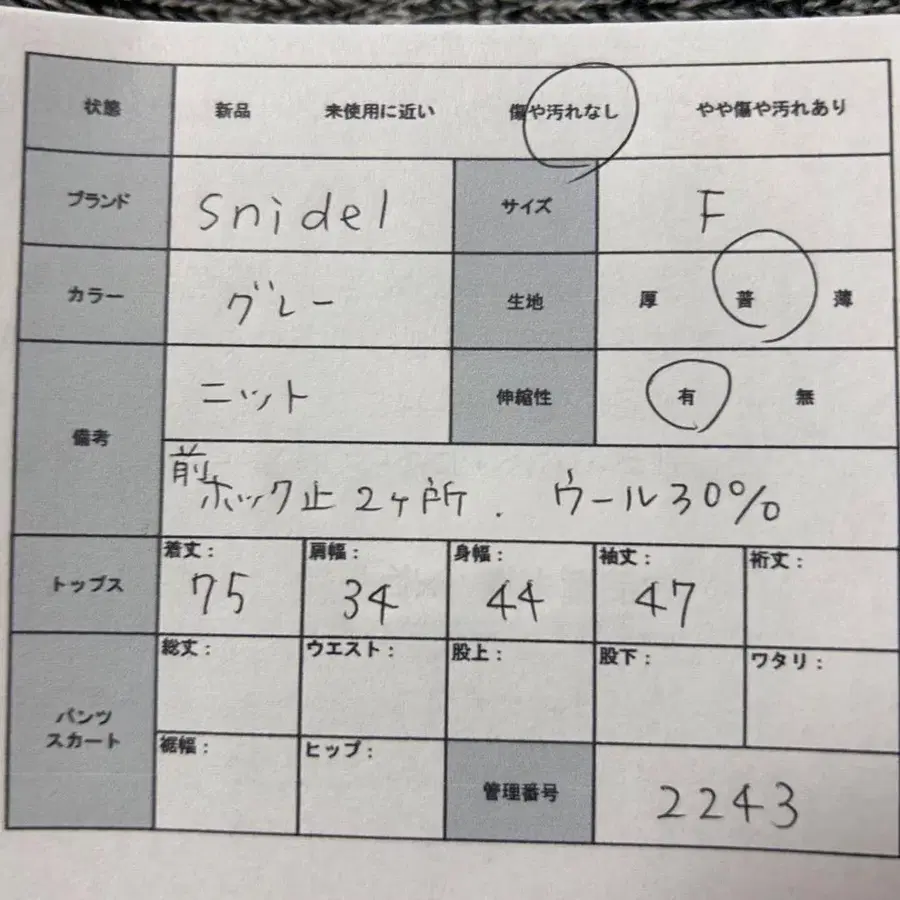 状態 新品 未使用に近い 傷や汚れなし やや傷や汚れあり
ブランド snidel サイズ F
カラー グレー 生地 厚 普 薄
備考 ニット 伸縮性 有 無
前ホック止2ヶ所. ウール30%
トップス 着丈: 75 肩幅: 34 身幅: 44 袖丈: 47 裄丈:
パンツ スカート 総丈: ウエスト: 股上: 股下: ワタリ:
裾幅: ヒップ: 管理番号 2243